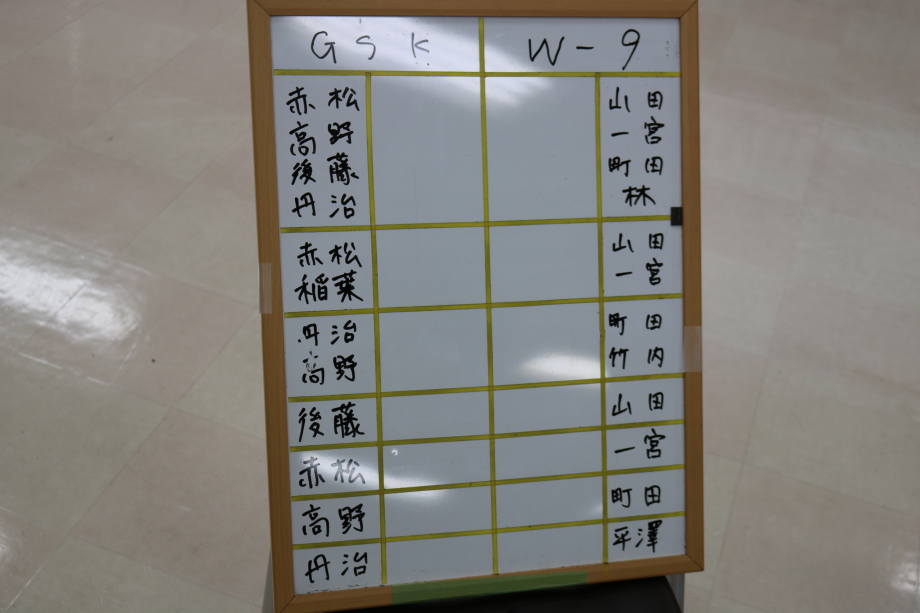 GSK W-9
赤松 山田
高野 一宮
後藤 町田
丹治 林
赤松 山田
稲葉 一宮
丹治 町田
高野 竹内
後藤 山田
赤松 一宮
高野 町田
丹治 平澤